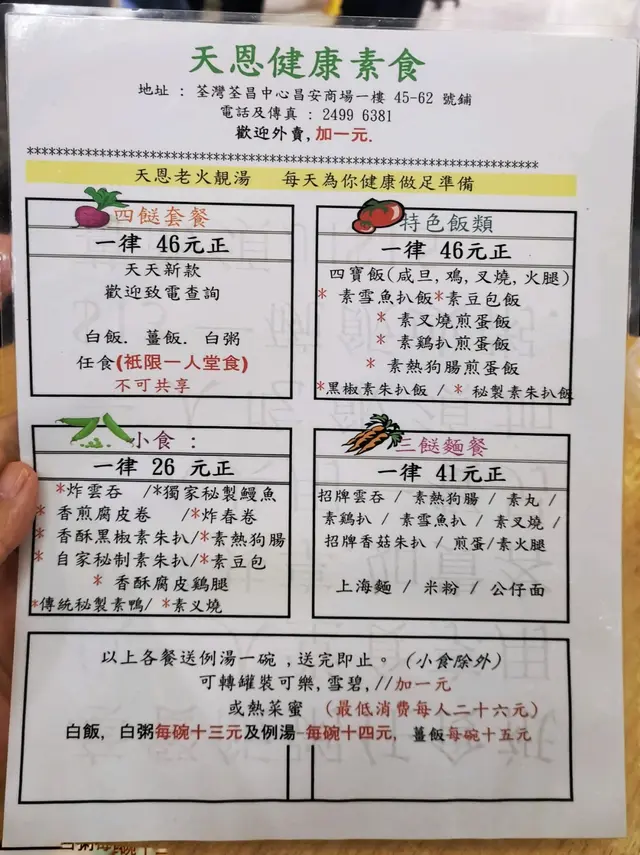 天恩健康素食
地址 : 荃灣荃昌中心昌安商場一樓 45-62 號鋪
電話及傳真 : 2499 6381
歡迎外賣,加一元.
天恩老火靚湯 每天為你健康做足準備
四餸套餐
一律 46元正
天天新款
歡迎致電查詢
白飯. 薑飯. 白粥
任食(衹限一人堂食)
不可共享
特色飯類
一律 46元正
四寶飯(咸旦,鳮,叉燒,火腿)
* 素雪魚扒飯*素豆包飯
* 素叉燒煎蛋飯
* 素鷄扒煎蛋飯
* 素熱狗腸煎蛋飯
*黑椒素朱扒飯 / * 秘製素朱扒飯
小食 :
一律 26 元正
*炸雲吞 /*獨家秘製鰻魚
* 香煎腐皮卷 /*炸春卷
* 香酥黑椒素朱扒/*素熱狗腸
* 自家秘制素朱扒/*素豆包
* 香酥腐皮鷄腿
*傳統秘製素鴨/ *素叉燒
三餸麵餐
一律 41元正
招牌雲吞 / 素熱狗腸 / 素丸 /
素鷄扒 / 素雪魚扒 / 素叉燒 /
招牌香菇朱扒 / 煎蛋/素火腿
上海麵 / 米粉 / 公仔面
以上各餐送例湯一碗 ,送完即止。(小食除外)
可轉罐裝可樂,雪碧,//加一元
或熱菜蜜 (最低消費每人二十六元)
白飯, 白粥每碗十三元及例湯-每碗十四元, 薑飯每碗十五元